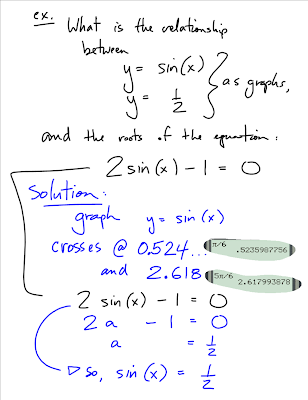 ex. What is the relationship
between
y = sin(x)
y = 1/2
as graphs,
and the roots of the equation:
2 sin(x) - 1 = 0
Solution:
graph y = sin(x)
crosses @ 0.524...
π/6
.5235987756
and 2.618
5π/6
2.617993878
2 sin(x) - 1 = 0
2 a - 1 = 0
a = 1/2
so, sin(x) = 1/2